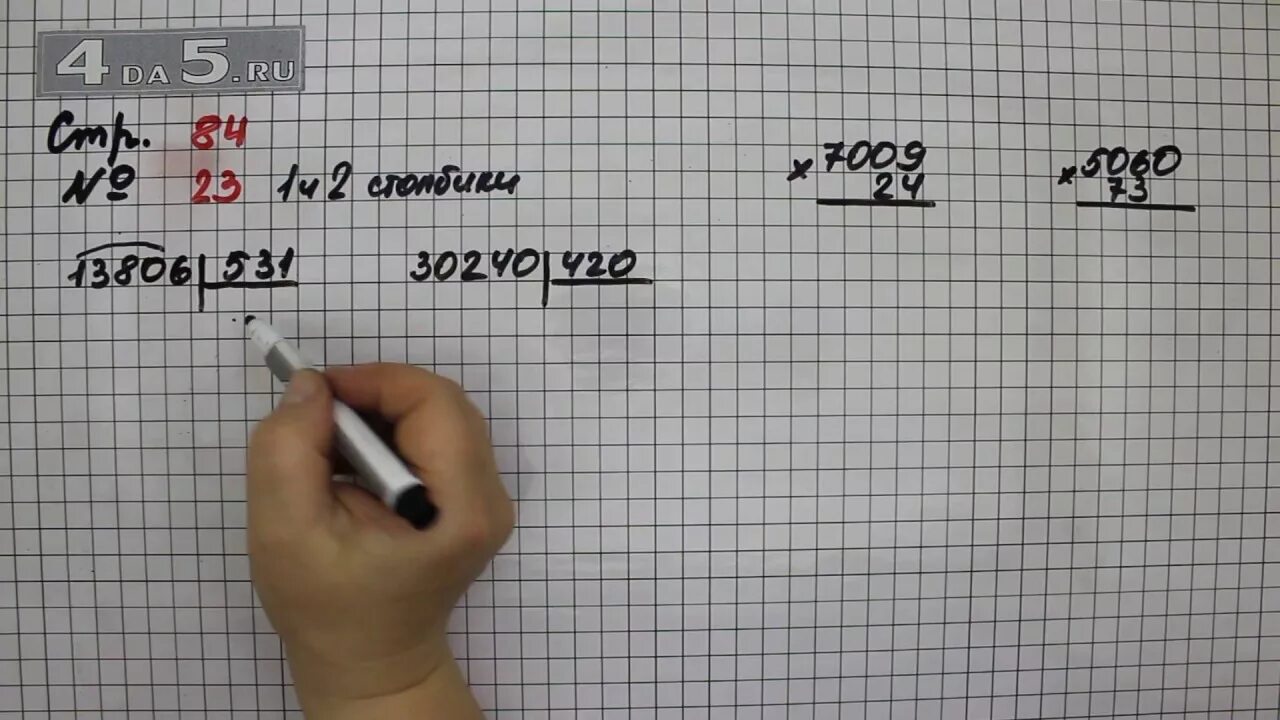 4DA5.RU
Стр. 84
№ 23 1 и 2 столбики
× 7009
24
× 5060
73
13806 | 531
30240 | 420